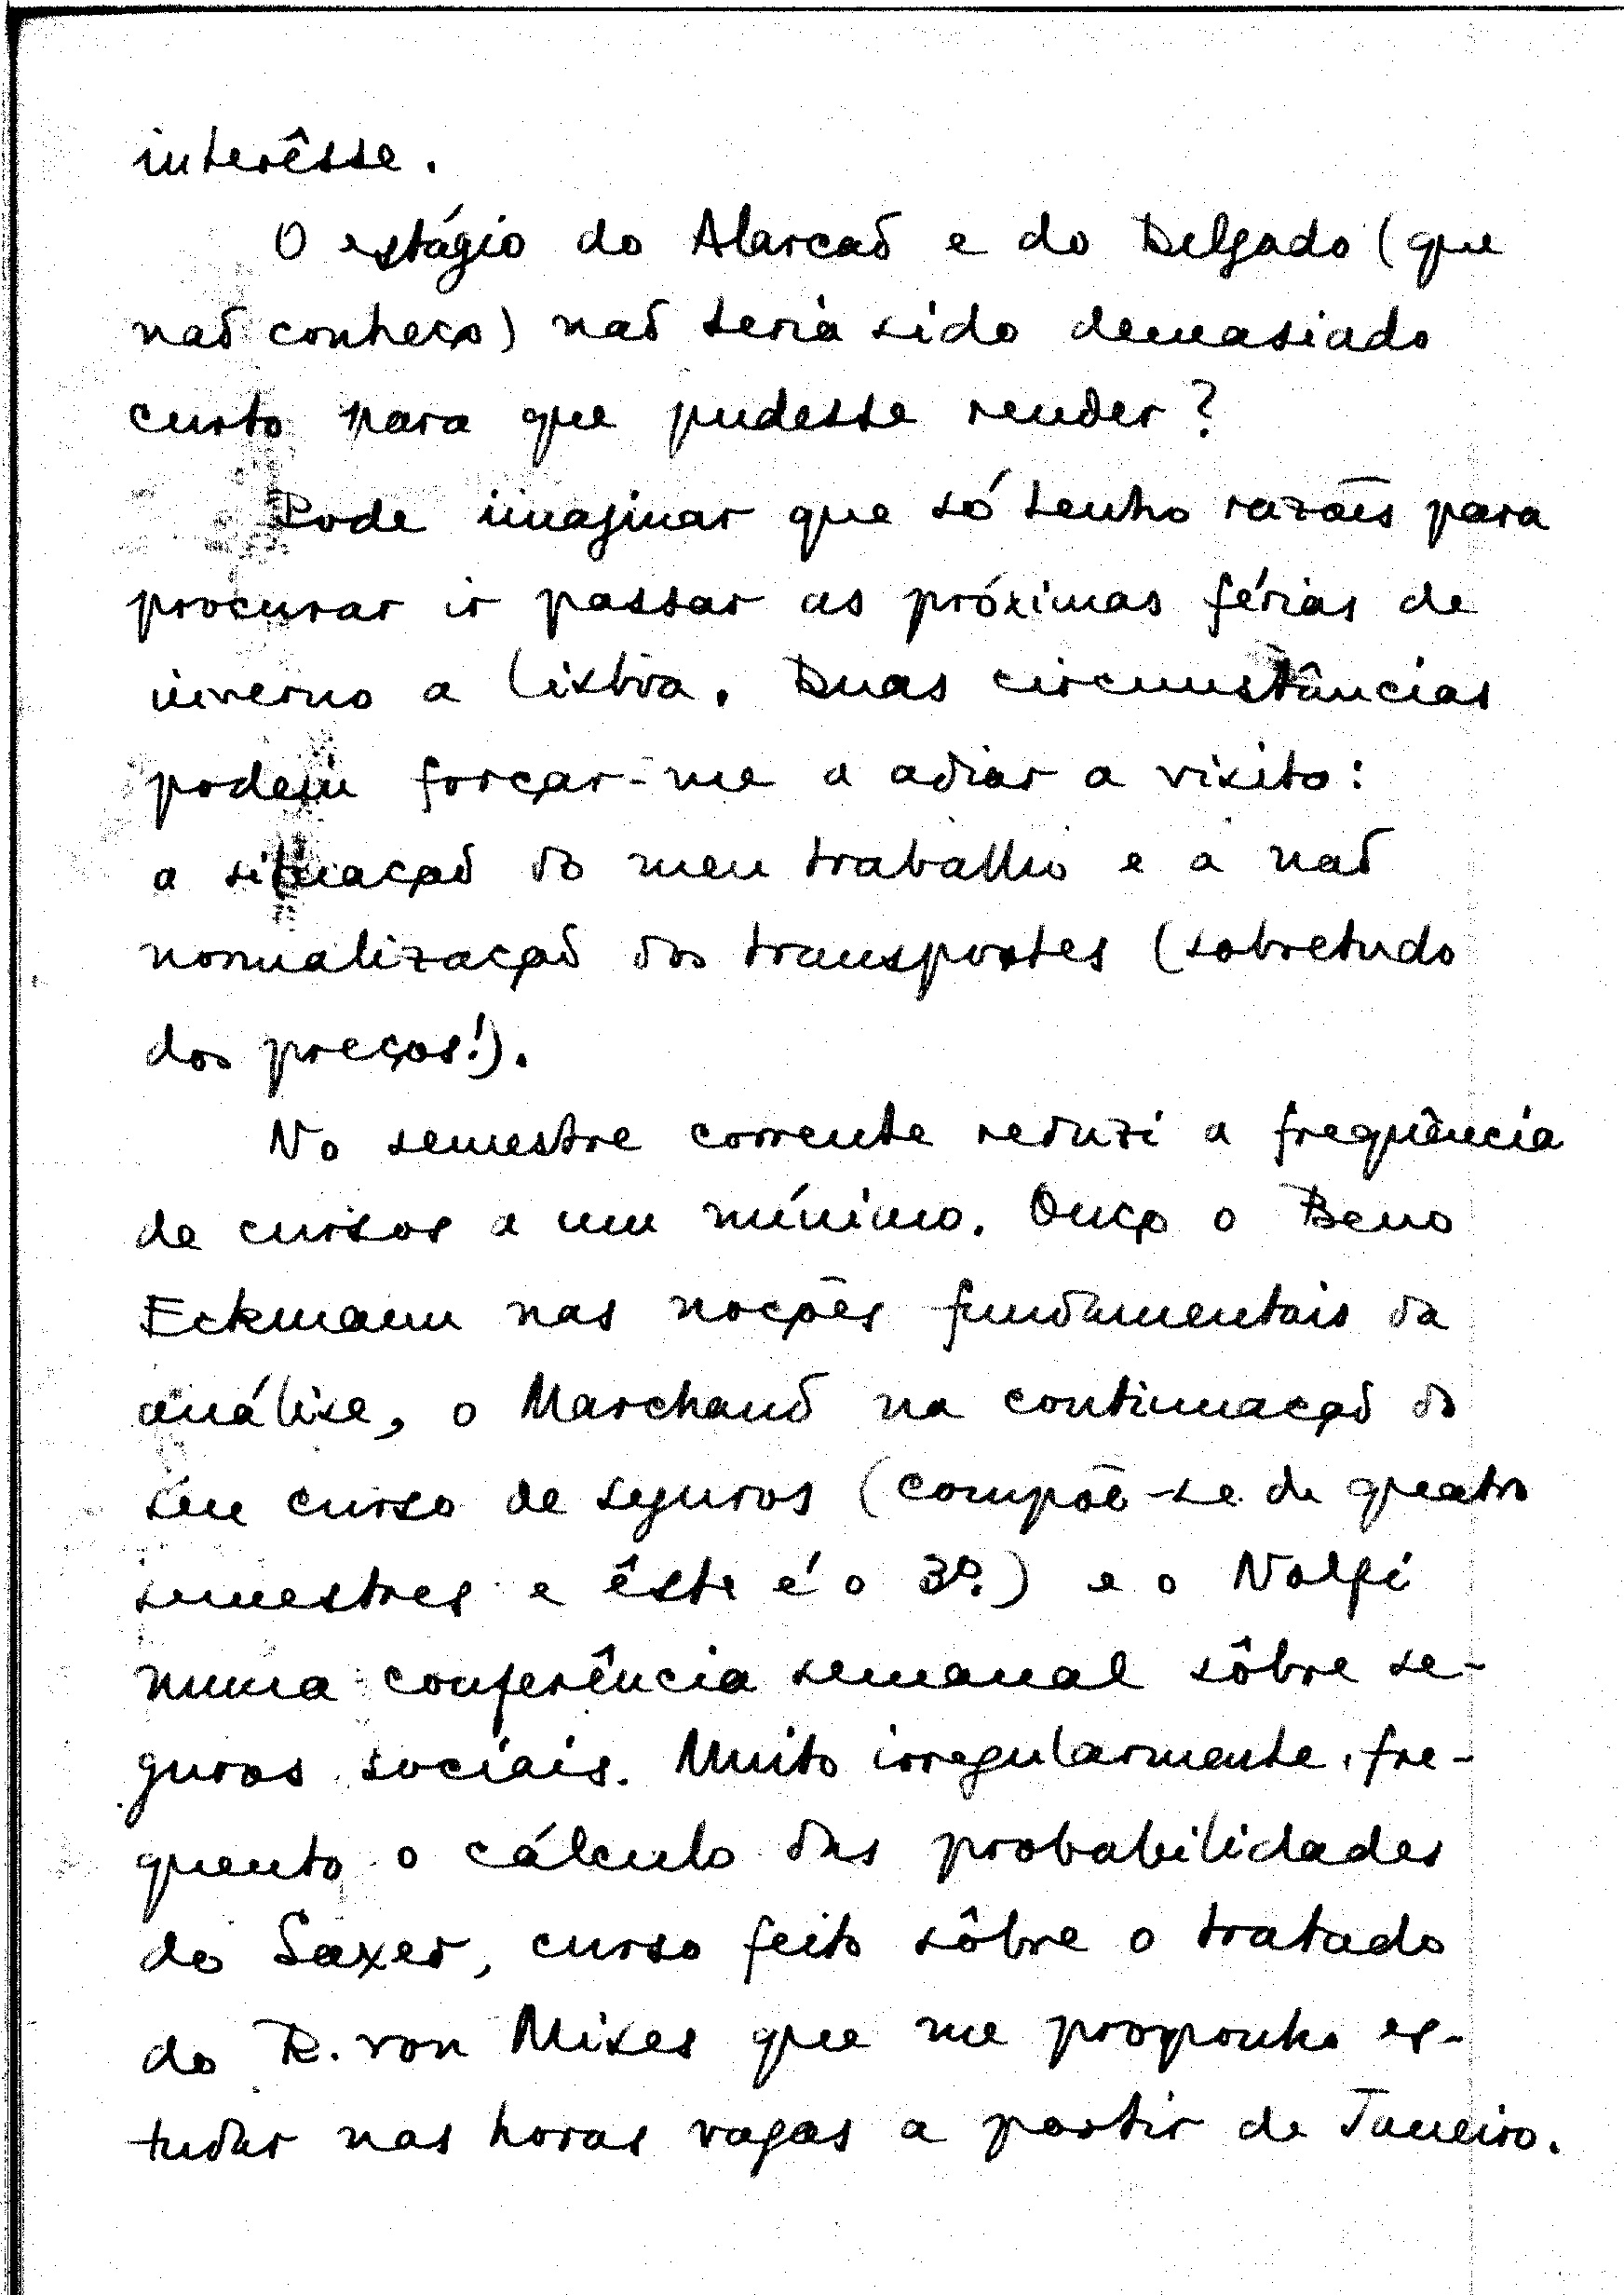 interêsse.
O estágio do Alarcão e do Delgado (que
não conheço) não teria sido demasiado
curto para que pudesse render?
Pode imaginar que só tenho razões para
procurar ir passar as próximas férias de
inverno a Lisboa. Duas circunstâncias
podem forçar-me a adiar a visita:
a situação do meu trabalho e a não
normalização dos transportes (sobretudo
dos preços!).
No semestre corrente reduzi a freqüência
de cursos a um mínimo. Ouço o Beno
Eckmann nas noções fundamentais da
análise, o Marchand na continuação do
seu curso de seguros (compõe-se de quatro
semestres e êste é o 3º.) e o Nolfi
numa conferência semanal sôbre se-
guros sociais. Muito irregularmente, fre-
quento o cálculo das probabilidades
do Saxer, curso feito sôbre o tratado
do R. von Mises que me proponho es-
tudar nas horas vagas a partir de Janeiro.